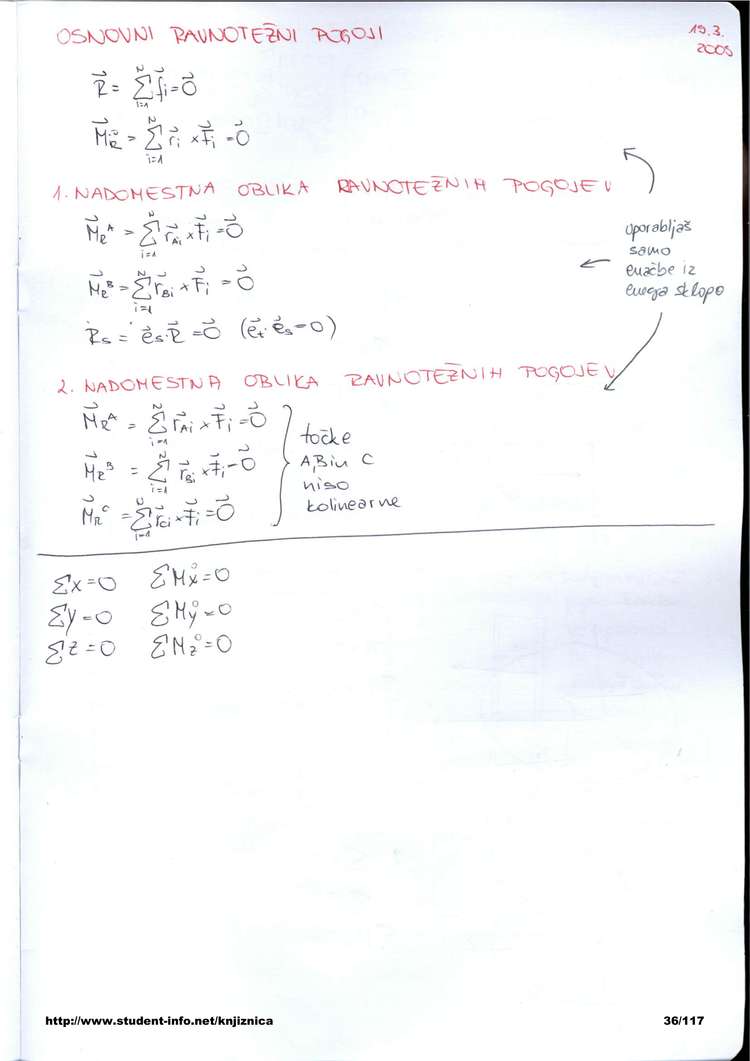 OSNOVNI RAVNOTEŽNI POGOJI
19.3.
2005
R⃗ = ∑_{i=1}^{N} f⃗i = 0⃗
M⃗_R^0 = ∑_{i=1}^{N} r⃗i × F⃗i = 0⃗
1. NADOMESTNA OBLIKA RAVNOTEŽNIH POGOJEV
M⃗_R^A = ∑_{i=1}^{N} r⃗_Ai × F⃗i = 0⃗
M⃗_R^B = ∑_{i=1}^{N} r⃗_Bi × F⃗i = 0⃗
Rs = e⃗s · R⃗ = 0⃗ (e⃗t · e⃗s = 0)
uporabljaš
samo
enačbe iz
enega sklopo
2. NADOMESTNA OBLIKA RAVNOTEŽNIH POGOJEV
M⃗_R^A = ∑_{i=1}^{N} r⃗_Ai × F⃗i = 0⃗
M⃗_R^B = ∑_{i=1}^{N} r⃗_Bi × F⃗i = 0⃗
M⃗_R^C = ∑_{i=1}^{N} r⃗_Ci × F⃗i = 0⃗
točke
A, B in C
niso
kolinearne
∑x = 0 ∑M_x^0 = 0
∑y = 0 ∑M_y^0 = 0
∑z = 0 ∑M_z^0 = 0
http://www.student-info.net/knjiznica 36/117